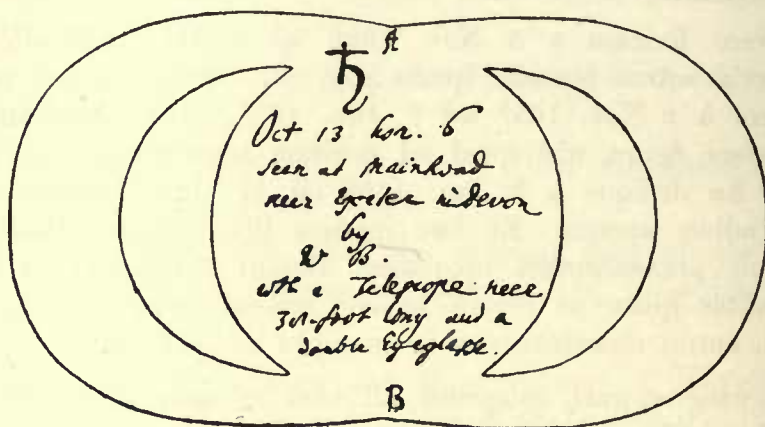 A
♄
Oct 13 hor. 6
seen at Mainhead
neer Exeter in Devon
by
W B.
with a Telescope neer
38-foot long and a
double Eyeglasse.
B